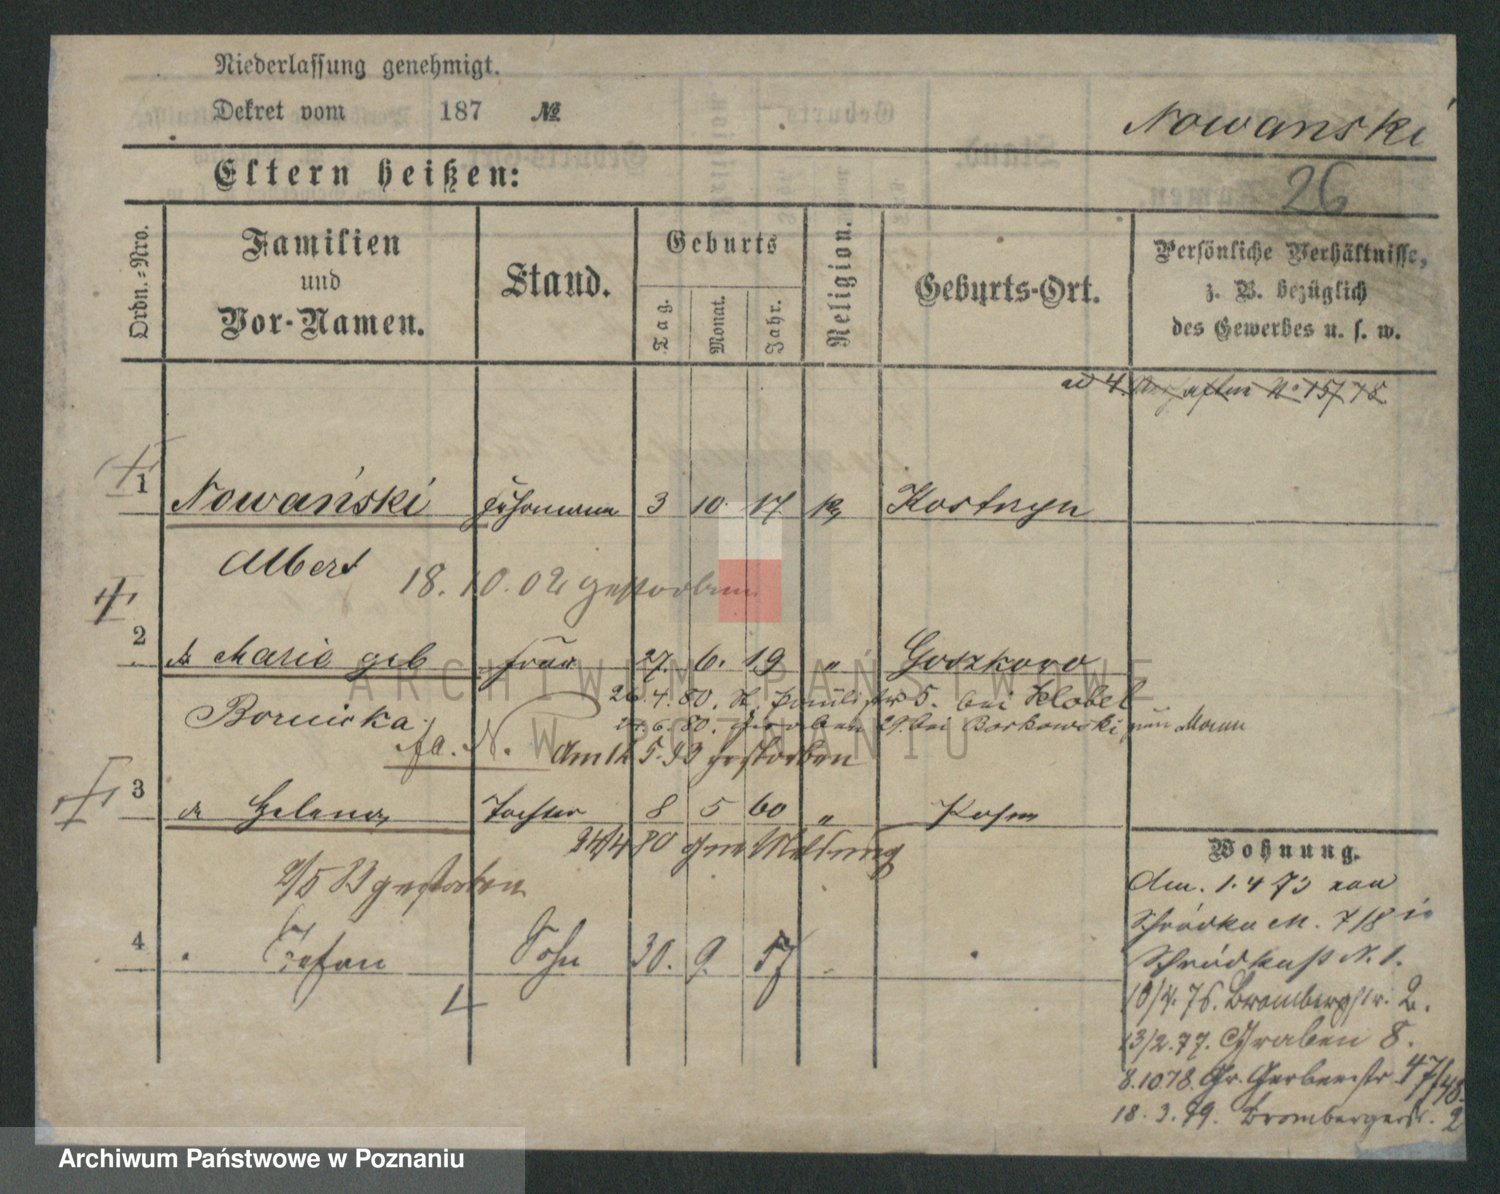 Niederlassung genehmigt.
Dekret vom 187 №
Nowanski
26
Eltern heißen:
Ordn.-Nro.
Familien und Vor-Namen.
Stand.
Geburts
Tag.
Monat.
Jahr.
Religion.
Geburts-Ort.
Persönliche Verhältnisse, z. B. bezüglich des Gewerbes u. s. w.
ad 4. No 15/78
1 Nowański 3 10. 17 k, Kostrzyn
Albert
18.10.02 gestorben
2 Marie geb Frau 27. 6. 19 „ Gorzkowo
Bornicka
26.4.80. bei Klobel
24.6.80. Graben 29. bei Borkowski
fa. N. am 12 5.93 gestorben
3 Helena, Tochter 8 5 60 „ Posen
24/4 80 ohne Meldung
2/5 gestorben
4 Stefan Sohn 30. 9. 57
Wohnung.
Am. 1.4 73 von
Schrodka M. 7/8 in
Schrodka N. 1.
10/4. 76. Brombergstr. 2.
13/2.77. Graben 8.
8.10 78. Gr. Gerberstr. 47/48.
18.3.79. Brombergerstr. 2
ARCHIWUM PAŃSTWOWE
W POZNANIU
Archiwum Państwowe w Poznaniu